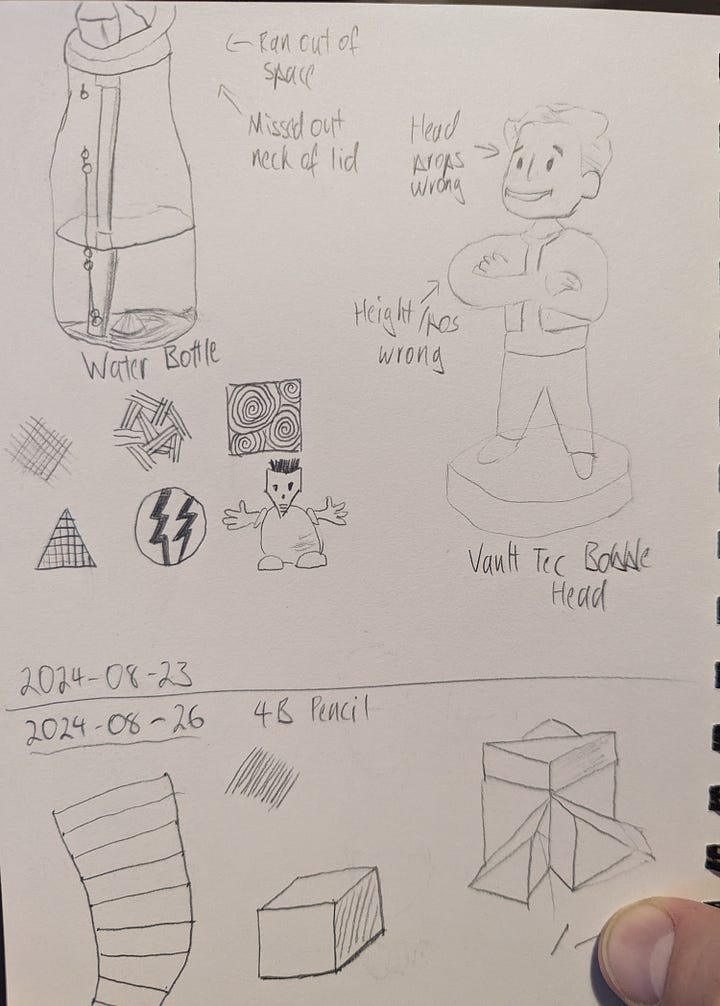 ← Ran out of
space
Missed out
neck of lid
Head
props
wrong
Height/pos
wrong
Water Bottle
Vault Tec Bobble
Head
2024-08-23
2024-08-26
4B Pencil